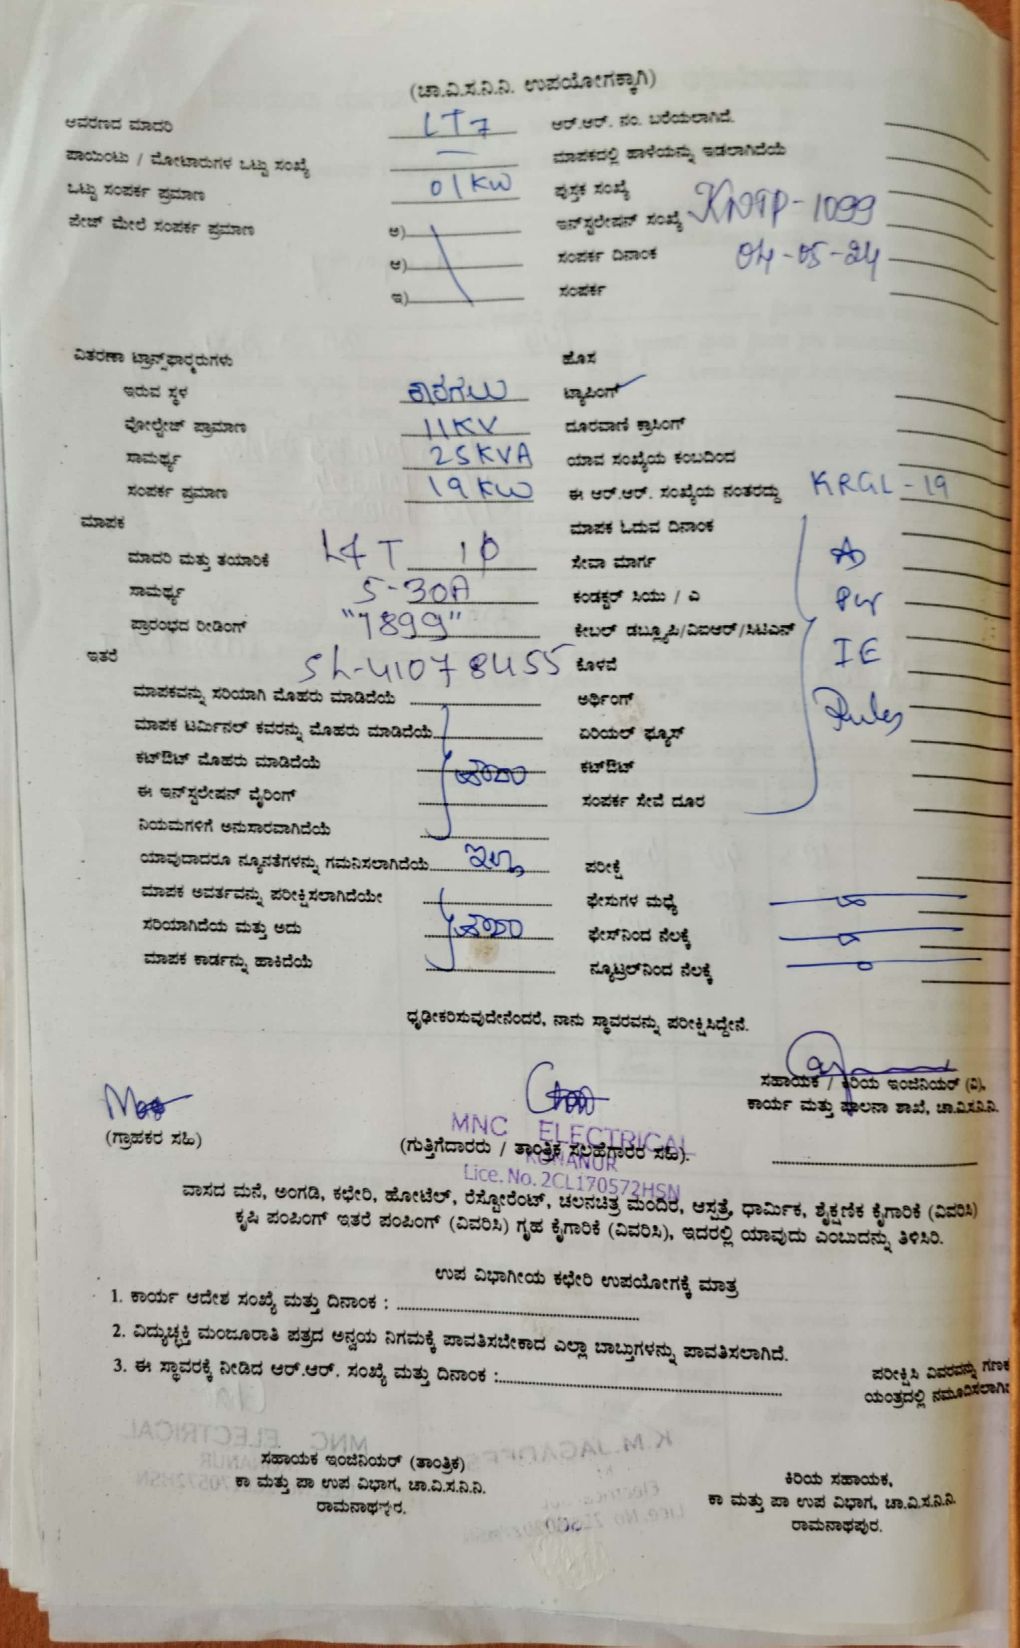 (ಚಾ.ವಿ.ಸ.ನಿ.ನಿ. ಉಪಯೋಗಕ್ಕಾಗಿ)
ಆವರಣದ ಮಾದರಿ LT7 ಆರ್.ಆರ್. ನಂ. ಬರೆಯಲಾಗಿದೆ.
ಪಾಯಿಂಟು / ಮೋಟಾರುಗಳ ಒಟ್ಟು ಸಂಖ್ಯೆ — ಮಾಪಕದಲ್ಲಿ ಹಾಳೆಯನ್ನು ಇಡಲಾಗಿದೆಯೆ
ಒಟ್ಟು ಸಂಪರ್ಕ ಪ್ರಮಾಣ 01KW ಪುಸ್ತಕ ಸಂಖ್ಯೆ
ಪೇಜ್ ಮೇಲೆ ಸಂಪರ್ಕ ಪ್ರಮಾಣ ಅ) ಇನ್‌ಸ್ಟಲೇಷನ್ ಸಂಖ್ಯೆ KNTP-1099
ಆ) ಸಂಪರ್ಕ ದಿನಾಂಕ 04-05-24
ಇ) ಸಂಪರ್ಕ
ವಿತರಣಾ ಟ್ರಾನ್ಸ್‌ಫಾರ್ಮರುಗಳು ಹೊಸ
ಇರುವ ಸ್ಥಳ ಕಾರಗಲು ಟ್ಯಾಪಿಂಗ್
ವೋಲ್ಟೇಜ್ ಪ್ರಾಮಾಣ 11KV ದೂರವಾಣಿ ಕ್ರಾಸಿಂಗ್
ಸಾಮರ್ಥ್ಯ 25KVA ಯಾವ ಸಂಖ್ಯೆಯ ಕಂಬದಿಂದ
ಸಂಪರ್ಕ ಪ್ರಮಾಣ 19KW ಈ ಆರ್.ಆರ್. ಸಂಖ್ಯೆಯ ನಂತರದ್ದು KRGL-19
ಮಾಪಕ ಮಾಪಕ ಓದುವ ದಿನಾಂಕ
ಮಾದರಿ ಮತ್ತು ತಯಾರಿಕೆ L&T 1Φ ಸೇವಾ ಮಾರ್ಗ As
ಸಾಮರ್ಥ್ಯ 5-30A ಕಂಡಕ್ಟರ್ ಸಿಯು / ಎ Per
ಪ್ರಾರಂಭದ ರೀಡಿಂಗ್ "7899" ಕೇಬಲ್ ಡಬ್ಲ್ಯೂಪಿ/ವಿಐಆರ್/ಸಿಟಿಎಸ್
ಇತರೆ SL-41078455 ಕೊಳವೆ IE
ಮಾಪಕವನ್ನು ಸರಿಯಾಗಿ ಮೊಹರು ಮಾಡಿದೆಯೆ ಅರ್ಥಿಂಗ್ Rules
ಮಾಪಕ ಟರ್ಮಿನಲ್ ಕವರನ್ನು ಮೊಹರು ಮಾಡಿದೆಯೆ ಏರಿಯಲ್ ಫ್ಯೂಸ್
ಕಟ್‌ಔಟ್ ಮೊಹರು ಮಾಡಿದೆಯೆ ಹೌದು ಕಟ್‌ಔಟ್
ಈ ಇನ್‌ಸ್ಟಲೇಷನ್ ವೈರಿಂಗ್ ಸಂಪರ್ಕ ಸೇವೆ ದೂರ
ನಿಯಮಗಳಿಗೆ ಅನುಸಾರವಾಗಿದೆಯೆ
ಯಾವುದಾದರೂ ನ್ಯೂನತೆಗಳನ್ನು ಗಮನಿಸಲಾಗಿದೆಯೆ ಇಲ್ಲ ಪರೀಕ್ಷೆ
ಮಾಪಕ ಅವರ್ತವನ್ನು ಪರೀಕ್ಷಿಸಲಾಗಿದೆಯೇ ಫೇಸುಗಳ ಮಧ್ಯೆ
ಸರಿಯಾಗಿದೆಯ ಮತ್ತು ಅದು ಹೌದು ಫೇಸ್‌ನಿಂದ ನೆಲಕ್ಕೆ
ಮಾಪಕ ಕಾರ್ಡನ್ನು ಹಾಕಿದೆಯೆ ನ್ಯೂಟ್ರಲ್‌ನಿಂದ ನೆಲಕ್ಕೆ
ಧೃಢೀಕರಿಸುವುದೇನೆಂದರೆ, ನಾನು ಸ್ಥಾವರವನ್ನು ಪರೀಕ್ಷಿಸಿದ್ದೇನೆ.
ಸಹಾಯಕ / ಕಿರಿಯ ಇಂಜಿನಿಯರ್ (ವಿ),
ಕಾರ್ಯ ಮತ್ತು ಪಾಲನಾ ಶಾಖೆ, ಚಾ.ವಿ.ಸನಿ.ನಿ.
MNC ELECTRICAL
(ಗ್ರಾಹಕರ ಸಹಿ) (ಗುತ್ತಿಗೆದಾರರು / ತಾಂತ್ರಿಕ ಸಲಹೆಗಾರರ ಸಹಿ).
KONANUR
Lice. No. 2CL170572HSN
ವಾಸದ ಮನೆ, ಅಂಗಡಿ, ಕಛೇರಿ, ಹೋಟೆಲ್, ರೆಸ್ಟೋರೆಂಟ್, ಚಲನಚಿತ್ರ ಮಂದಿರ, ಆಸ್ಪತ್ರೆ, ಧಾರ್ಮಿಕ, ಶೈಕ್ಷಣಿಕ ಕೈಗಾರಿಕೆ (ವಿವರಿಸಿ)
ಕೃಷಿ ಪಂಪಿಂಗ್ ಇತರೆ ಪಂಪಿಂಗ್ (ವಿವರಿಸಿ) ಗೃಹ ಕೈಗಾರಿಕೆ (ವಿವರಿಸಿ), ಇದರಲ್ಲಿ ಯಾವುದು ಎಂಬುದನ್ನು ತಿಳಿಸಿರಿ.
ಉಪ ವಿಭಾಗೀಯ ಕಛೇರಿ ಉಪಯೋಗಕ್ಕೆ ಮಾತ್ರ
1. ಕಾರ್ಯ ಆದೇಶ ಸಂಖ್ಯೆ ಮತ್ತು ದಿನಾಂಕ :
2. ವಿದ್ಯುಚ್ಛಕ್ತಿ ಮಂಜೂರಾತಿ ಪತ್ರದ ಅನ್ವಯ ನಿಗಮಕ್ಕೆ ಪಾವತಿಸಬೇಕಾದ ಎಲ್ಲಾ ಬಾಬ್ತುಗಳನ್ನು ಪಾವತಿಸಲಾಗಿದೆ.
3. ಈ ಸ್ಥಾವರಕ್ಕೆ ನೀಡಿದ ಆರ್.ಆರ್. ಸಂಖ್ಯೆ ಮತ್ತು ದಿನಾಂಕ : ಪರೀಕ್ಷಿಸಿ ವಿವರವನ್ನು ಗಣಕ
ಯಂತ್ರದಲ್ಲಿ ನಮೂದಿಸಲಾಗಿ
ಸಹಾಯಕ ಇಂಜಿನಿಯರ್ (ತಾಂತ್ರಿಕ) ಕಿರಿಯ ಸಹಾಯಕ,
ಕಾ ಮತ್ತು ಪಾ ಉಪ ವಿಭಾಗ, ಚಾ.ವಿ.ಸ.ನಿ.ನಿ. ಕಾ ಮತ್ತು ಪಾ ಉಪ ವಿಭಾಗ, ಚಾ.ವಿ.ಸ.ನಿ.ನಿ.
ರಾಮನಾಥಪುರ. ರಾಮನಾಥಪುರ.